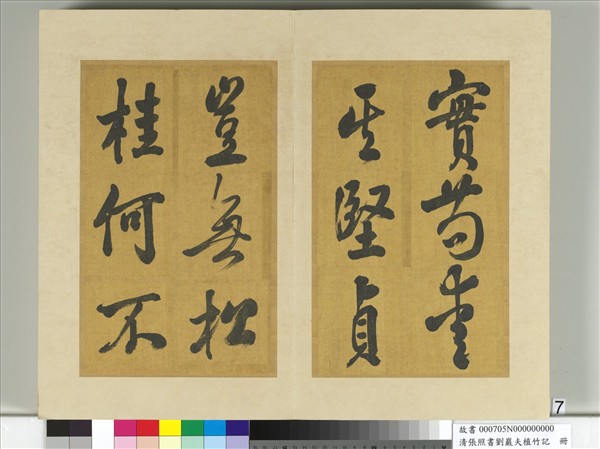 實苟愛
其堅貞
豈無松
桂何不
7
故書 000705N000000000
清張照書劉巖夫植竹記 冊